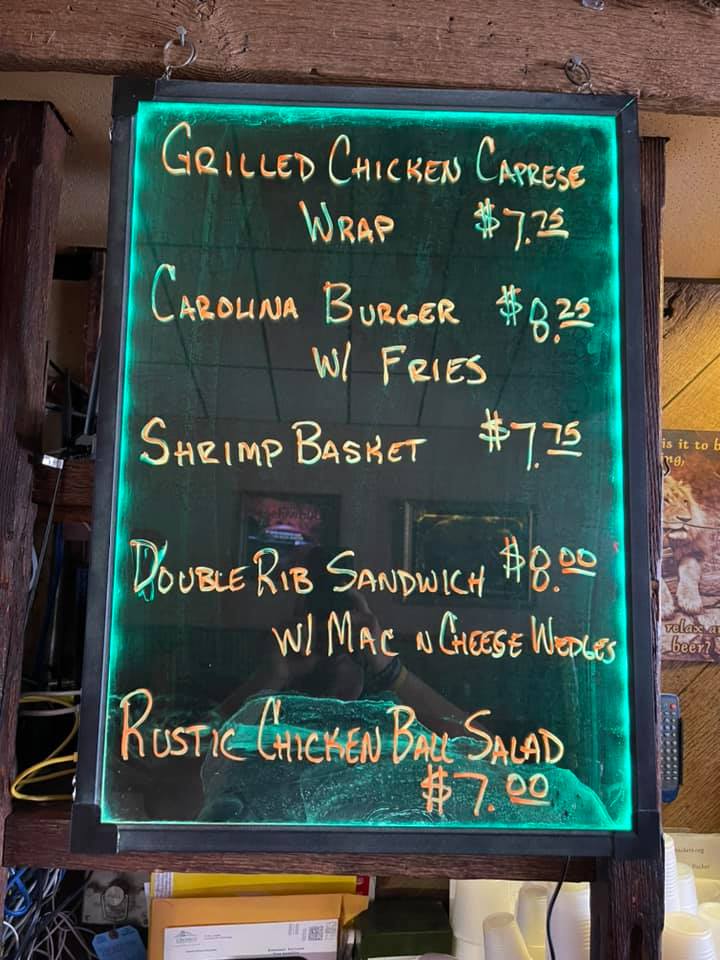 GRILLED CHICKEN CAPRESE
WRAP $7.75
CAROLINA BURGER $8.25
W/ FRIES
SHRIMP BASKET $7.75
DOUBLE RIB SANDWICH $8.00
W/ MAC N CHEESE WEDGES
RUSTIC CHICKEN BALL SALAD
$7.00
is it to b
relax a
beer?